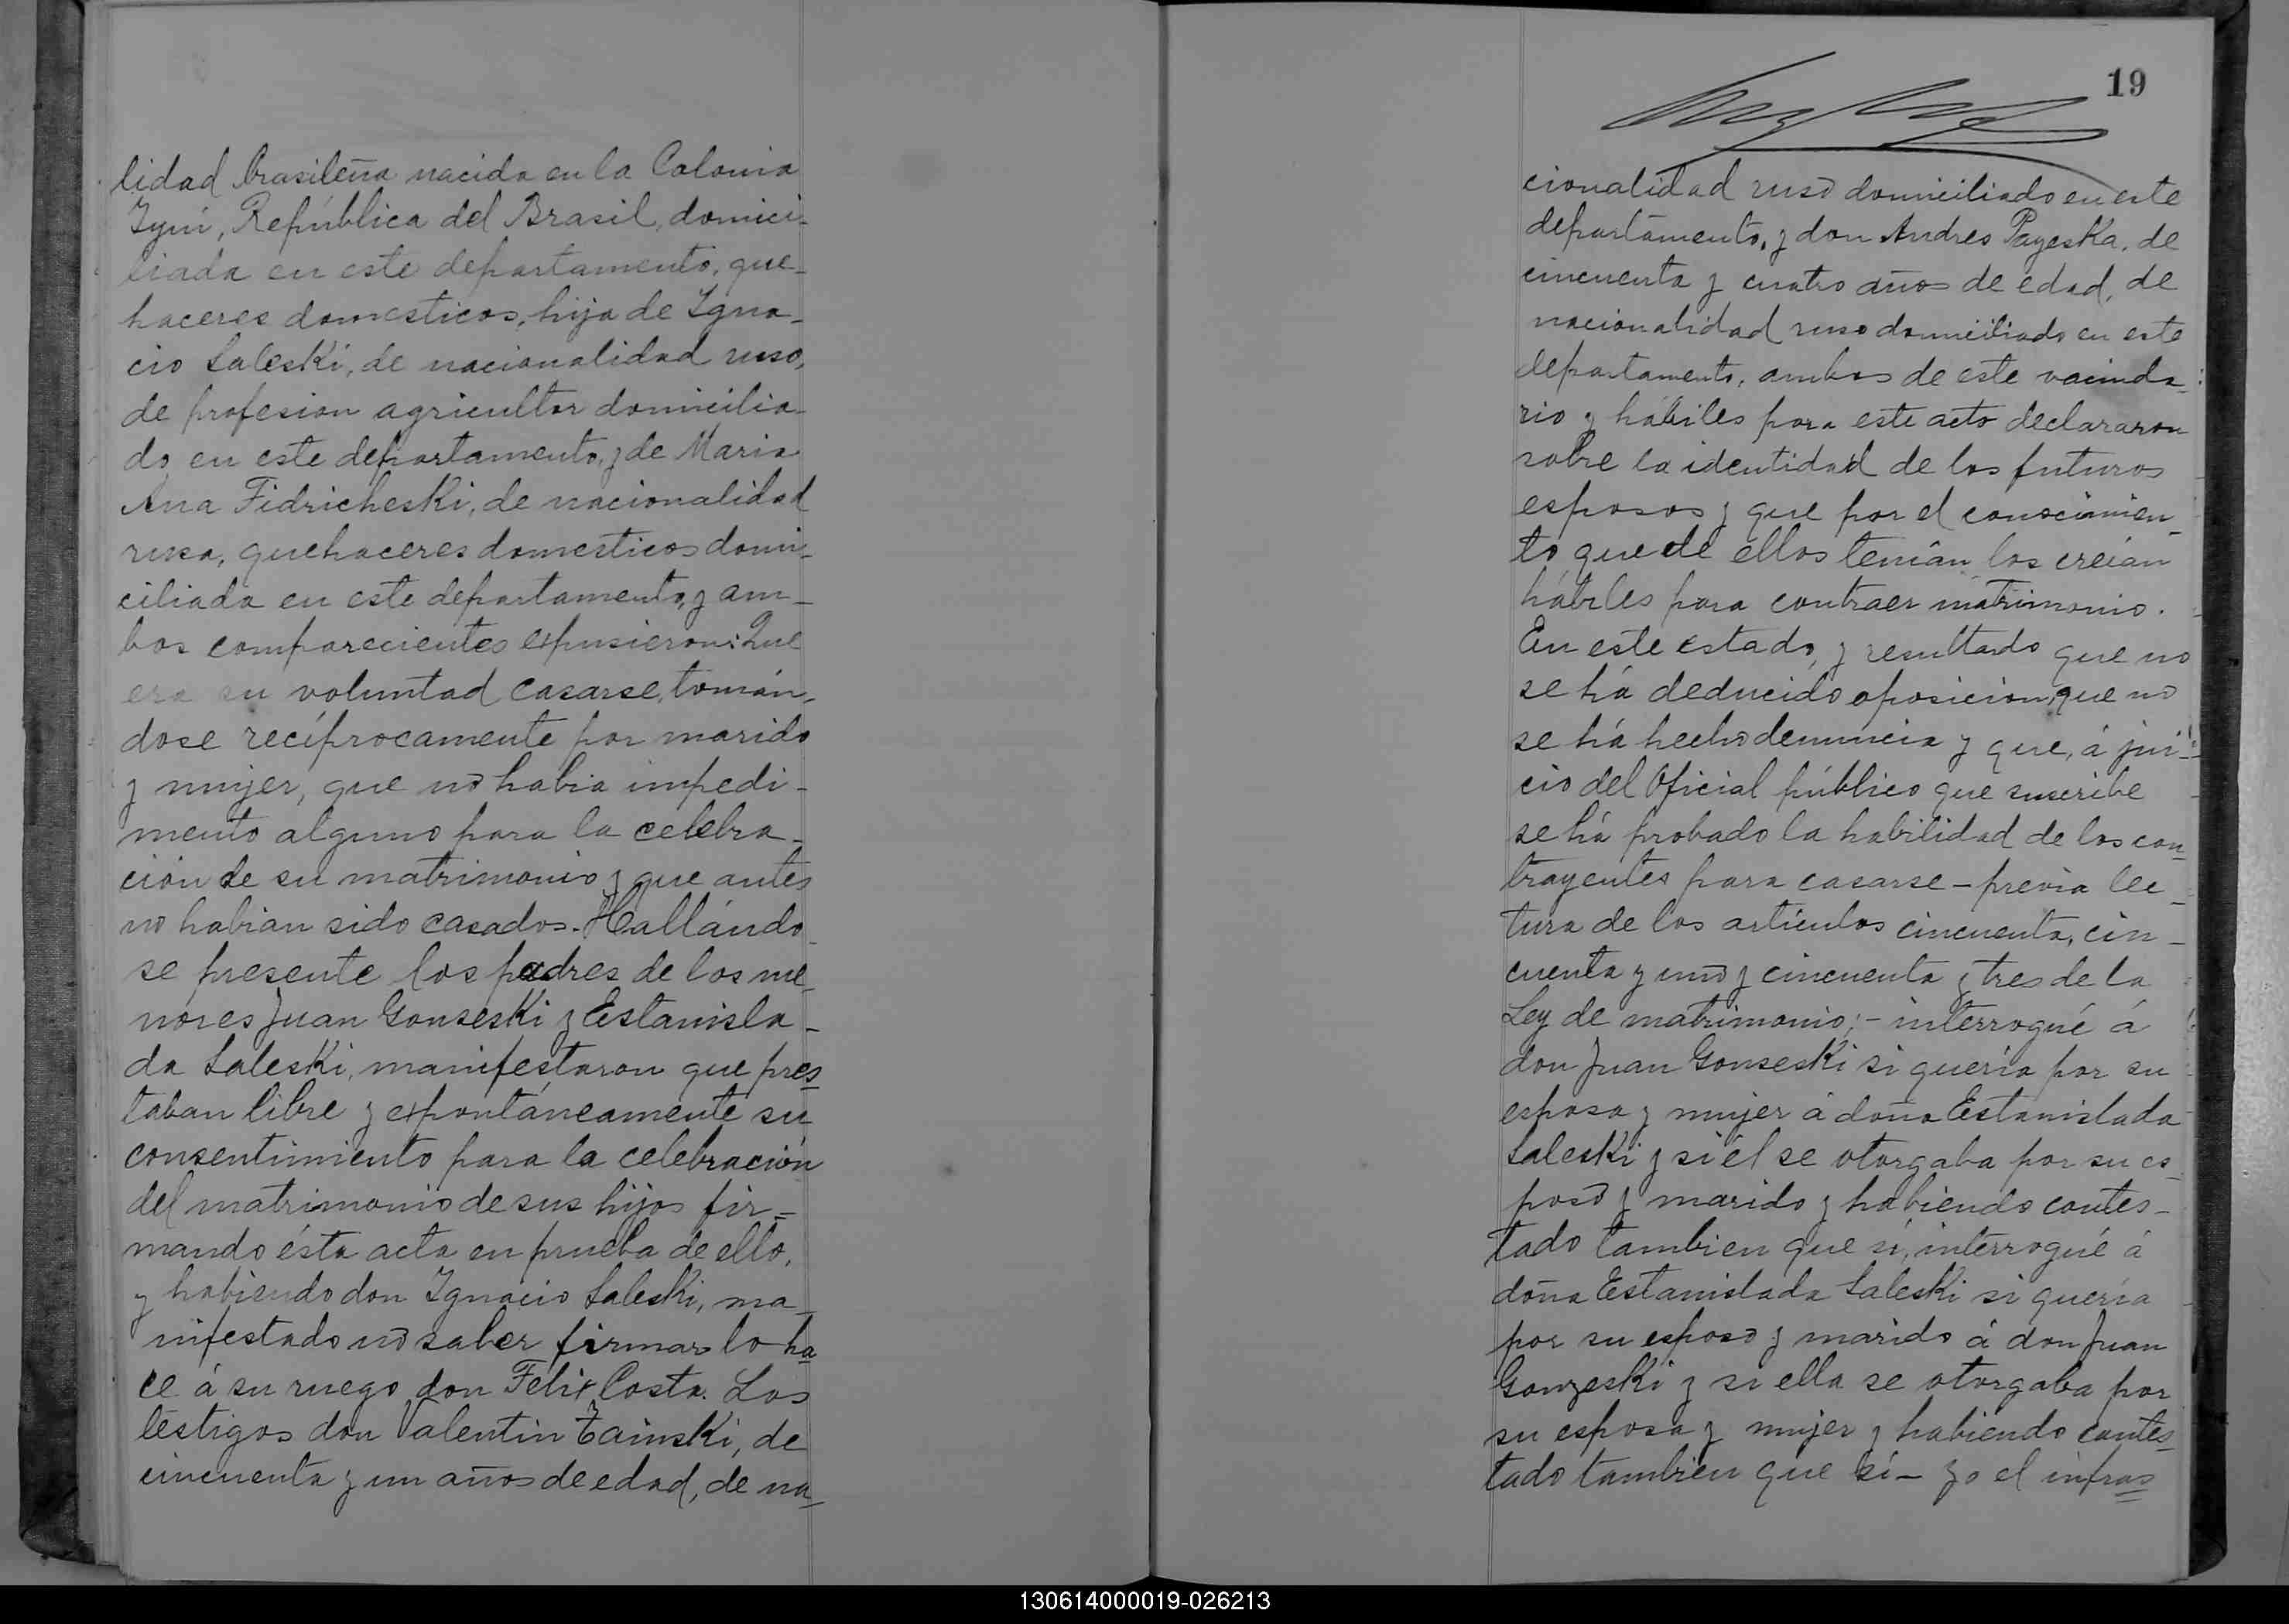 lidad brasileña nacida en la Colonia
Iyuí, República del Brasil, domici-
liada en este departamento, que-
haceres domesticos, hija de Igna-
cio Saleski, de nacionalidad ruso,
de profesion agricultor domicilia-
do en este departamento, y de Maria
Ana Fidricheski, de nacionalidad
rusa, quehaceres domesticos domi-
ciliada en este departamento, y am-
bos comparecientes expusieron: Que
era su voluntad casarse, tomán-
dose recíprocamente por marido
y mujer, que no habia impedi-
mento alguno para la celebra-
ción de su matrimonio y que antes
no habian sido casados. Hallándo-
se presente los padres de los me-
nores Juan Gonseski y Estanisla-
da Saleski, manifestaron que pres-
taban libre y expontáneamente su
consentimiento para la celebración
del matrimonio de sus hijos fir-
mando ésta acta en prueba de ello,
y habiendo don Ignacio Saleski, ma-
nifestado no saber firmar lo ha-
ce á su ruego don Felix Costa. Los
testigos don Valentin Zainski, de
cincuenta y un años de edad, de na-
19
cionalidad ruso domiciliado en este
departamento, y don Andres Payeska, de
cincuenta y cuatro años de edad, de
nacionalidad ruso domiciliado en este
departamento, ambos de este vacinda-
rio y hábiles para este acto declararon
sobre la identidad de los futuros
esposos y que por el conocimien-
to que de ellos tenían los creían
hábiles para contraer matrimonio.
En este estado, y resultando que no
se há deducido oposicion, que no
se há hecho denuncia y que, á jui-
cio del Oficial público que suscribe
se há probado la habilidad de los con-
trayentes para casarse - previa lec-
tura de los artículos cincuenta, cin-
cuenta y uno y cincuenta y tres de la
Ley de matrimonio; - interrogué á
don Juan Gonseski si queria por su
esposa y mujer á doña Estanislada
Saleski y si él se otorgaba por su es-
poso y marido y habiendo contes-
tado tambien que si, interrogué á
doña Estanislada Saleski si quería
por su esposo y marido á don Juan
Gonzeski y si ella se otorgaba por
su esposa y mujer y habiendo contes-
tado tambien que si - yo el infras-
130614000019-026213